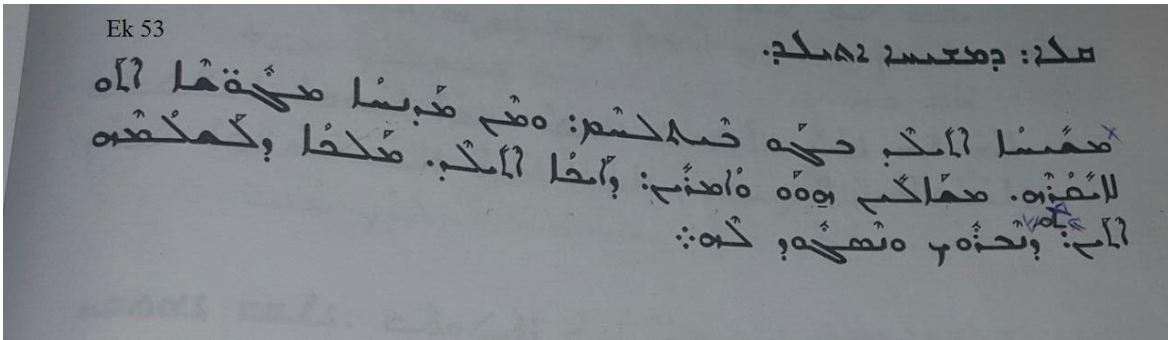 ܩܠܐ: ܕܡܫܝܚܐ ܐܬܝܠܕ.
ܡܫܝܚܐ ܐܬܝܠܕ ܒܓܘ ܒܝܬܠܚܡ: ܘܡܢ ܡܕܢܚܐ ܡܓܘ̈ܫܐ ܐܬܘ
ܠܐܝܩܪܗ. ܡܫܐܠܝܢ ܗܘܘ ܘܐܡܪܝܢ: ܕܐܝܟܐ ܐܬܝܠܕ. ܡܠܟܐ ܕܠܫܠܡܗ
ܐܬܝܢ: ܕܢܒܪܘܟ ܘܢܣܓܘܕ ܠܗ܀
Ek 53